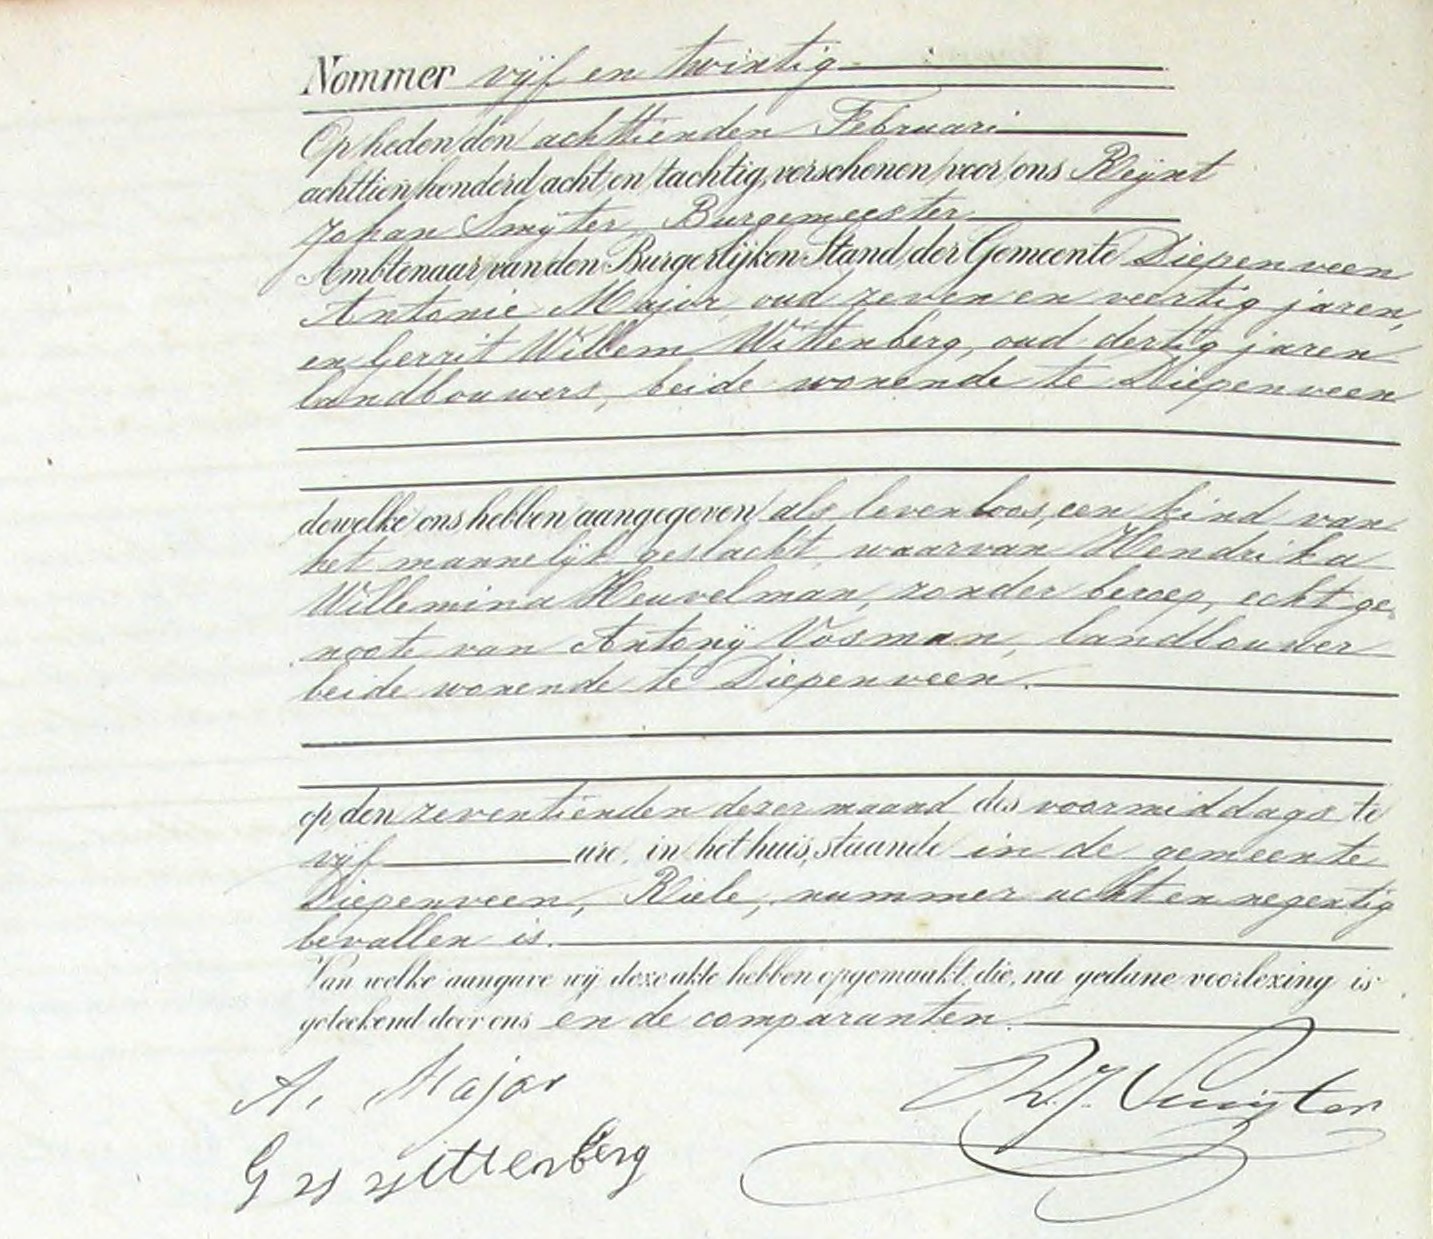 Nommer vijf en twintig
Op heden den achttienden Februari
achttien honderd acht en tachtig, verschenen voor ons Reijnt
Johan Smijter, Burgemeester
Ambtenaar van den Burgerlijken Stand der Gemeente Diepenveen
Antonie Major, oud zeven en veertig jaren,
en Gerrit Willem Wittenberg, oud dertig jaren
landbouwers, beide wonende te Diepenveen
dewelke ons hebben aangegeven als levenloos, een kind van
het mannelijk geslacht, waarvan Hendrika
Willemina Heuvelman, zonder beroep, echtge-
noote van Antonij Vosman, landbouwer
beide wonende te Diepenveen.
op den zeventienden dezer maand des voormiddags te
vijf ure, in het huis, staande in de gemeente
Diepenveen, Riele, nummer acht en negentig
bevallen is.
Van welke aangave wij deze akte hebben opgemaakt, die, na gedane voorlezing is
geteekend door ons en de comparanten.
A. Major
R.J. Smijter
G W Wittenberg